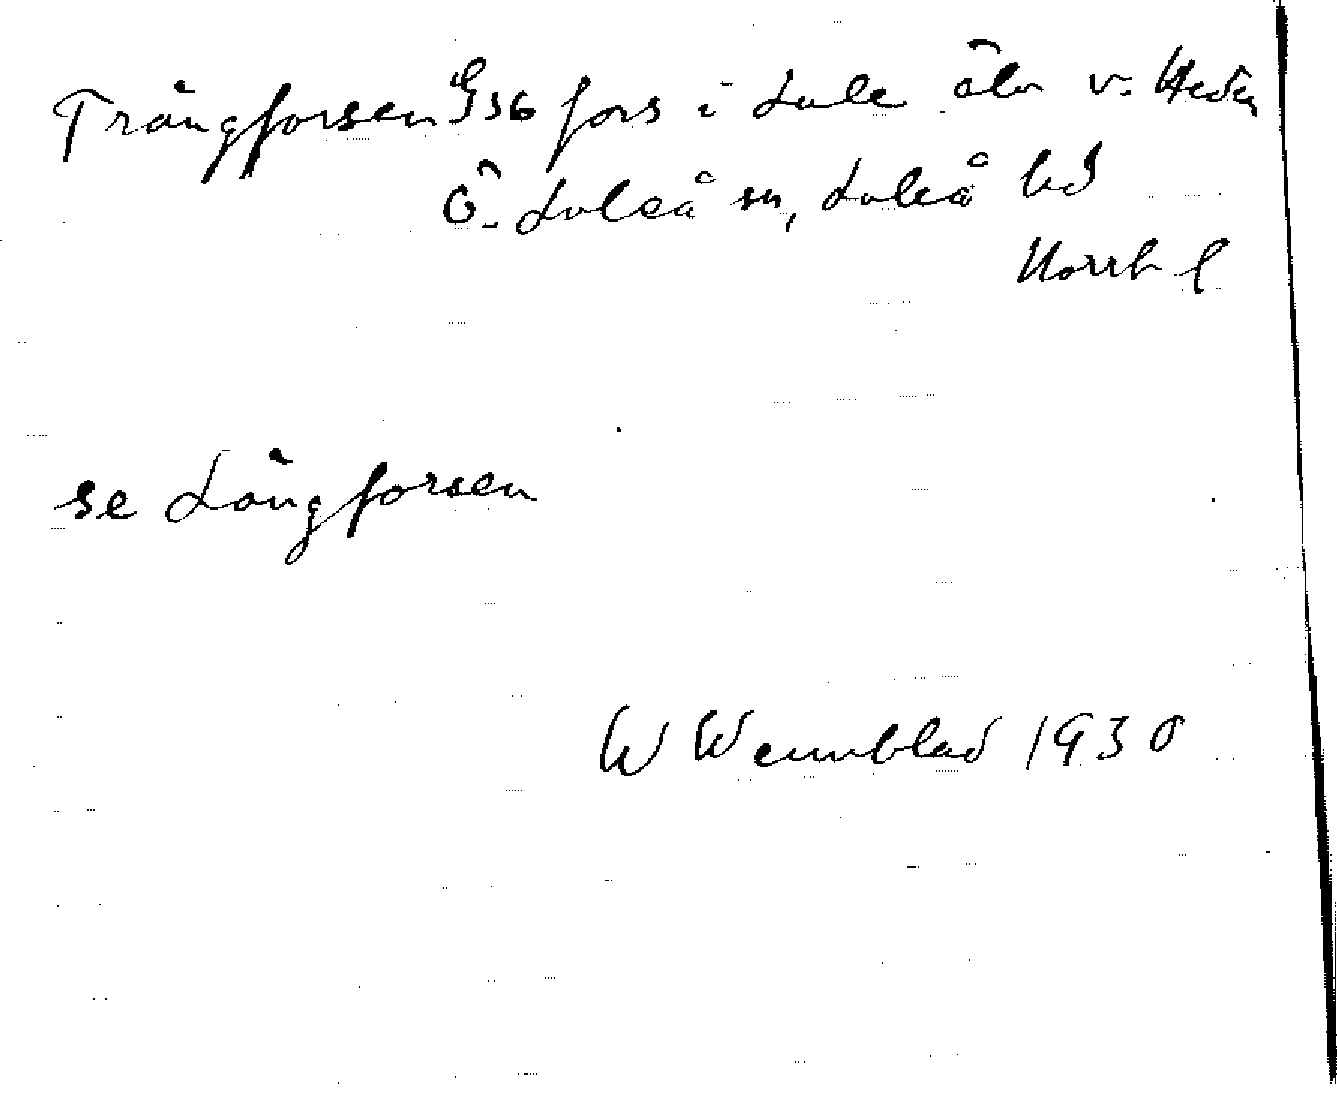 Trångforsen G36 fors i Lule älv v. Heden
Ö. Luleå sn, Luleå hd
Norrb l
se Långforsen
W Wennblad 1930